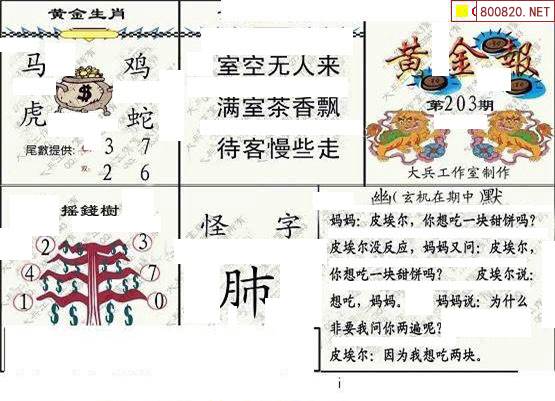 800820.NET
黄金生肖
马 鸡
虎 蛇
尾數提供: 3 7
2 6
室空无人来
满室茶香飘
待客慢些走
黄金報
第203期
大兵工作室制作
摇錢樹
2 3
4 7
1 0
怪 字
肺
幽(玄机在期中 默
妈妈：皮埃尔，你想吃一块甜饼吗？
皮埃尔没反应，妈妈又问：皮埃尔，
你想吃一块甜饼吗？ 皮埃尔说：
想吃，妈妈。 妈妈说：为什么
非要我问你两遍呢？
皮埃尔：因为我想吃两块。
i